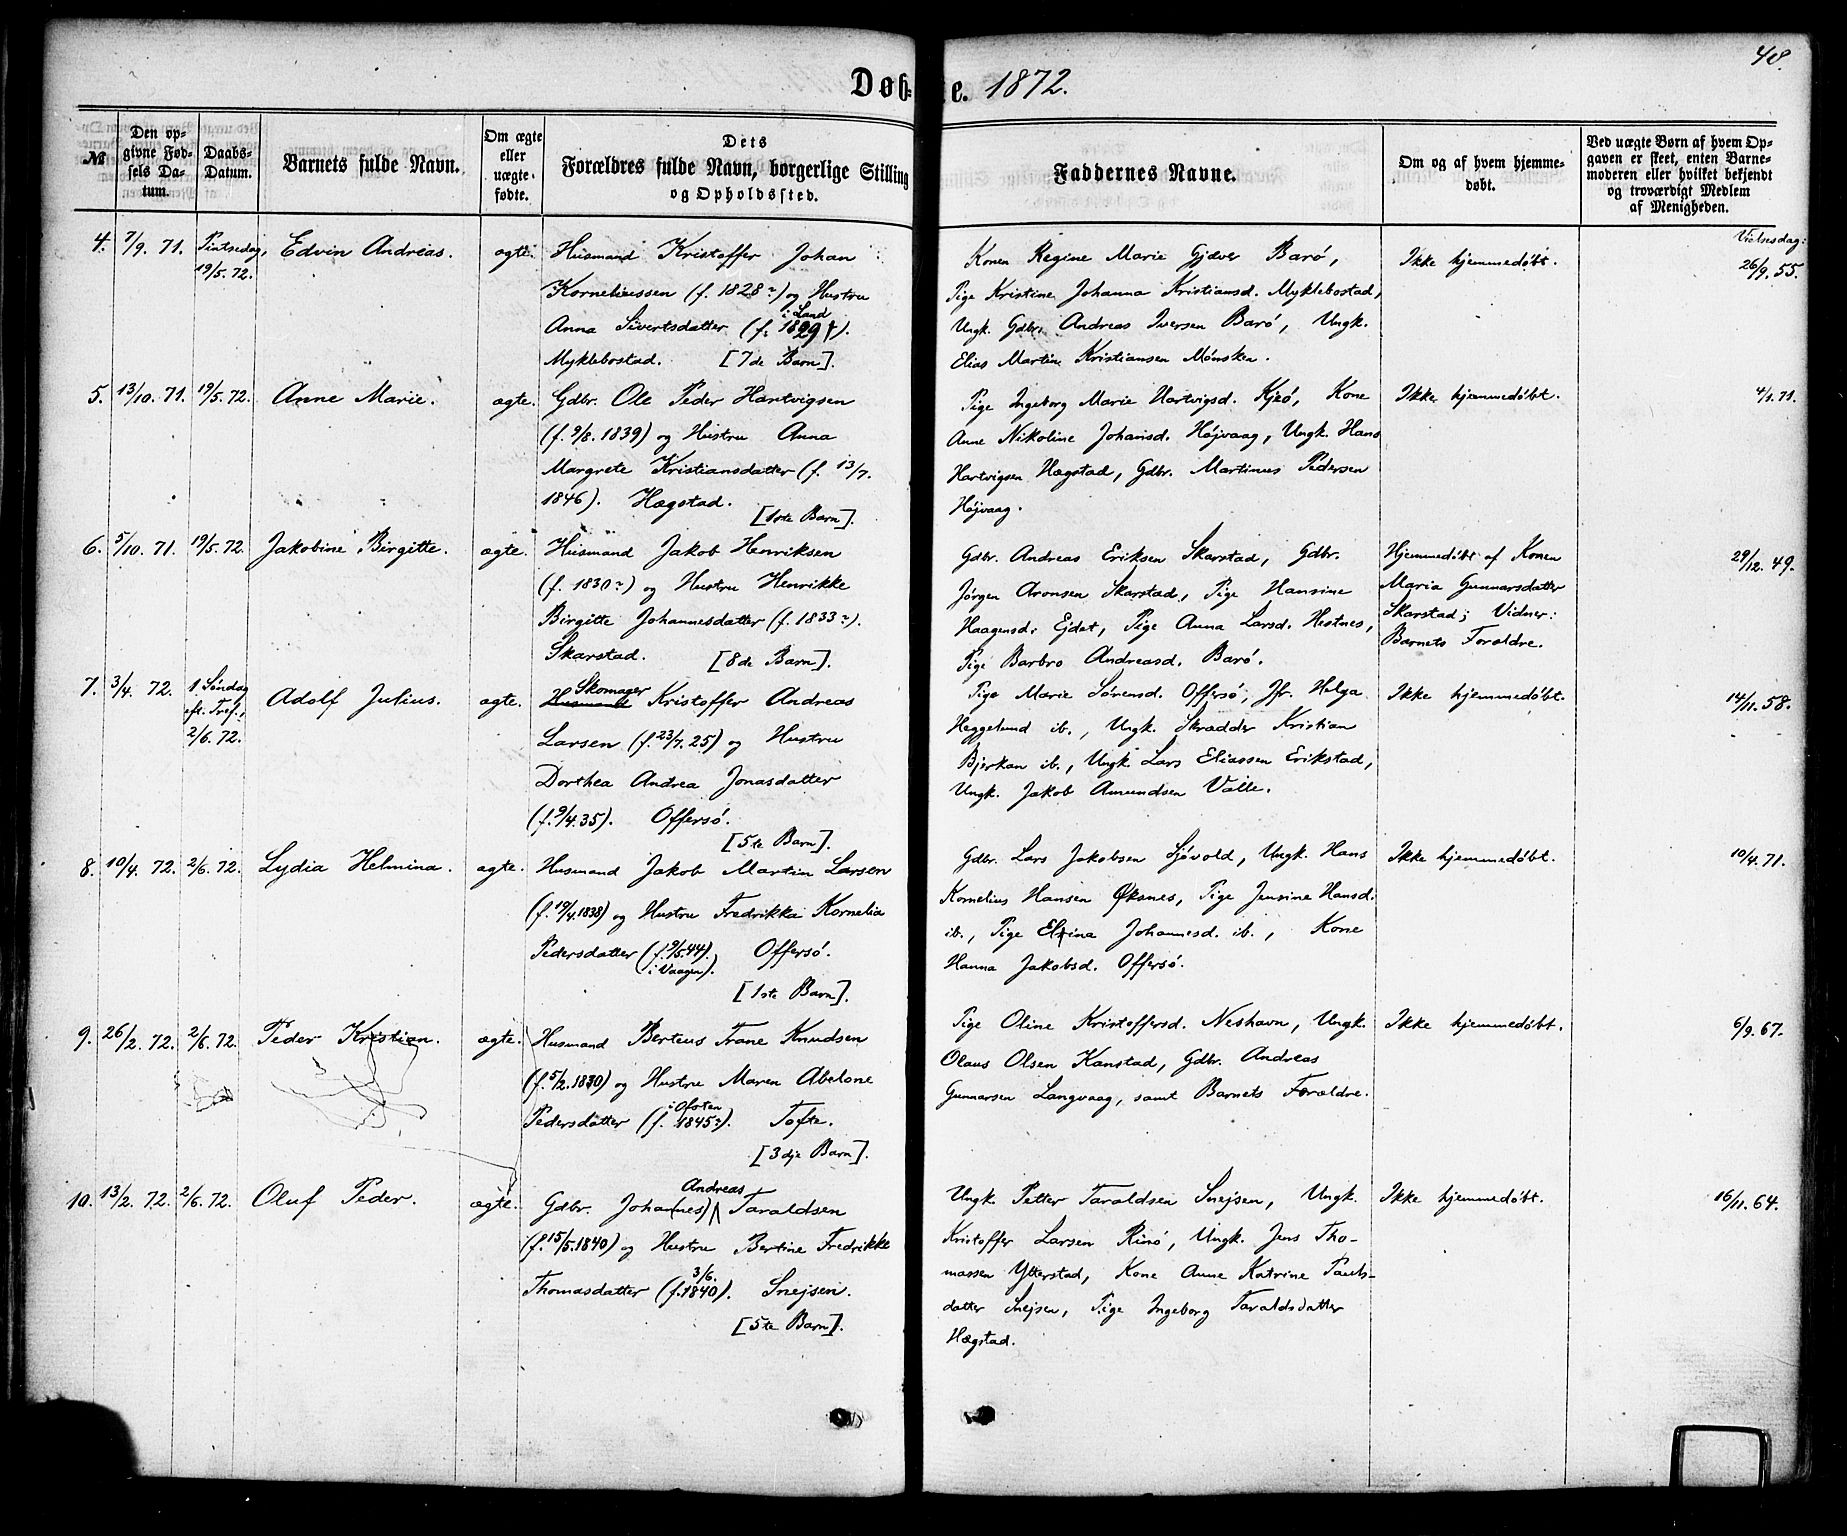 48.
Døbte. 1872.
№
Den op-
givne Fød-
sels Da-
tum.
Daabs-
Datum.
Barnets fulde Navn.
Om ægte
eller
uægte-
fødte.
Dets
Forældres fulde Navn, borgerlige Stilling
og Opholdssted.
Faddernes Navne.
Om og af hvem hjemme-
døbt.
Ved uægte Børn af hvem Op-
gaven er skeet, enten Barne-
moderen eller hvilket bekjendt
og troværdigt Medlem
af Menigheden.
4. 7/9. 71. Pintsedag, 19/5. 72. Edvin Andreas. ægte.
Husmand Kristoffer Johan
Korneliussen (f. 1828?) og Hustru
Anna Sivertsdatter (f. i Land 1829).
Myklebostad. [7de Barn].
Konen Regine Marie Gjæver Barø,
Pige Kristine Johanna Kristiansd. Myklebostad,
Ungk. Gdbr. Andreas Iversen Barø, Ungk.
Elias Martin Kristiansen Mønsken.
Ikke hjemmedøbt.
Vielsesdag:
26/9. 55.
5. 13/10. 71. 19/5. 72. Anne Marie. ægte.
Gdbr. Ole Peder Hartvigsen
(f. 9/8. 1839) og Hustru Anna
Margrete Kristiansdatter (f. 13/7.
1846). Hægstad.
[1ste Barn].
Pige Ingeborg Marie Hartvigsd. Kjeø, Kone
Anne Nikoline Johansd. Højvaag, Ungk. Hans
Hartvigsen Hægstad, Gdbr. Martinus Pedersen
Højvaag.
Ikke hjemmedøbt.
4/1. 71.
6. 5/10. 71. 19/5. 72. Jakobine Birgitte. ægte.
Husmand Jakob Henriksen
(f. 1830?) og Hustru Henrikke
Birgitte Johannesdatter (f. 1833?).
Skarstad. [8de Barn].
Gdbr. Andreas Eriksen Skarstad, Gdbr.
Jørgen Aronsen Skarstad, Pige Hansine
Haagensd. Ejdet, Pige Anna Larsd. Hestnes,
Pige Barbro Andreasd. Barø.
Hjemmedøbt af Konen
Maria Gunnarsdatter
Skarstad; Vidner:
Barnets Forældre.
29/12. 49.
7. 3/4. 72. 1. Søndag eft. Tref., 2/6. 72. Adolf Julius. ægte.
Skomager
Husmand Kristoffer Andreas
Larsen (f. 23/7. 25) og Hustru
Dorthea Andrea Jonasdatter
(f. 9/4. 35). Offersø.
[5te Barn].
Pige Marie Sørensd. Offersø, Jfr. Helga
Heggelund ib., Ungk. Skrædder Kristian
Bjerkan ib., Ungk. Lars Eliassen Erikstad,
Ungk. Jakob Amundsen Valle.
Ikke hjemmedøbt.
14/11. 58.
8. 10/4. 72. 2/6. 72. Lydia Helmina. ægte.
Husmand Jakob Martin Larsen
(f. 19/4. 1838) og Hustru Fredrikka Kornelia
Pedersdatter (f. 9/5. 44). Offersø.
i Vaagen).
[1ste Barn].
Gdbr. Lars Jakobsen Sjøvold, Ungk. Hans
Kornelius Hansen Øksnes, Pige Jensine Hansd.
ib., Pige Elina Johannesd. ib., Kone
Hanna Jakobsd. Offersø.
Ikke hjemmedøbt.
10/4. 71.
9. 26/2. 72. 2/6. 72. Peder Kristian. ægte.
Husmand Berteus Trane Knudsen
(f. 5/2. 1830) og Hustru Maren Abelone
Pedersdatter (f. i Ofoten 1845?). Tofte.
[3dje Barn].
Pige Oline Kristoffersd. Neshavn, Ungk.
Olaus Olsen Kanstad, Gdbr. Andreas
Gunnarsen Langvaag, samt Barnets Forældre.
Ikke hjemmedøbt.
6/9. 67.
10. 13/2. 72. 2/6. 72. Oluf Peder. ægte.
Andreas
Gdbr. Joha(nes) Taraldsen
(f. 15/5. 1840) og Hustru Bertine Fredrikke
Thomasdatter (f. 3/6. 1840). Snejsen.
[5te Barn].
Ungk. Petter Taraldsen Snejsen, Ungk.
Kristoffer Larsen Rinø, Ungk. Jens Tho-
massen Ytterstad, Kone Anne Katrine Pauls-
datter Snejsen, Pige Ingeborg Taraldsdatter
Hægstad.
Ikke hjemmedøbt.
16/11. 64.